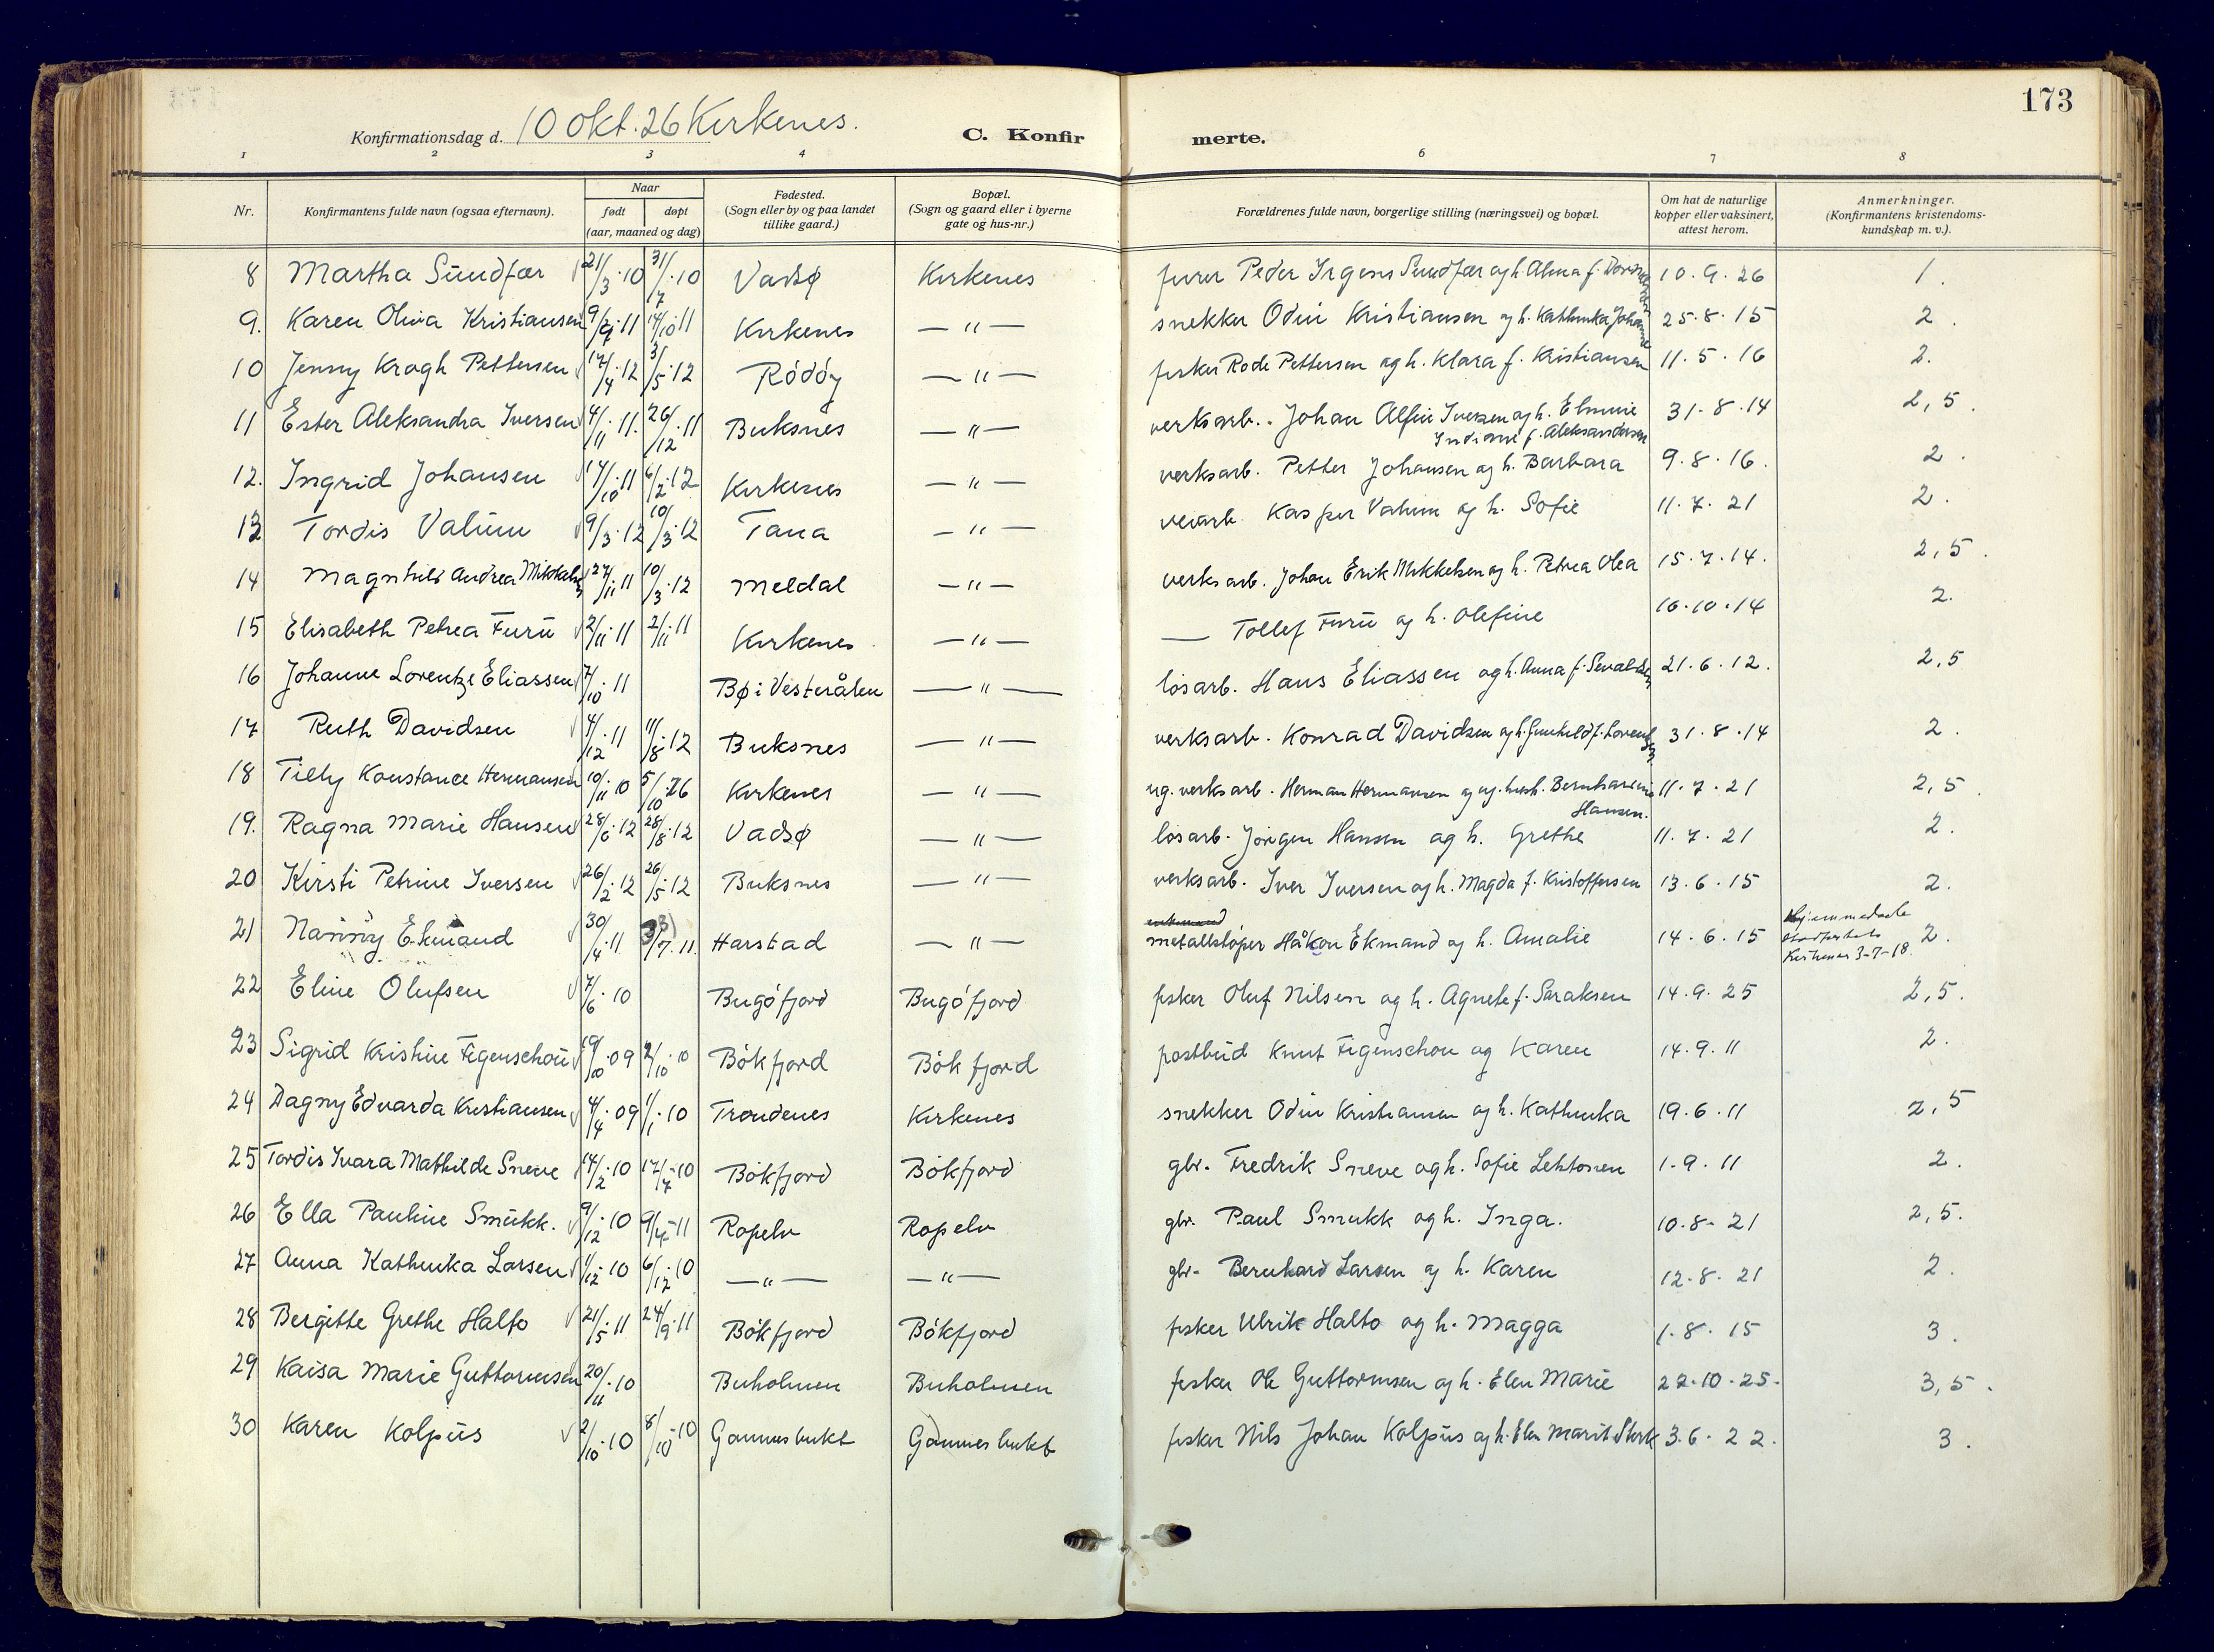 173
Konfirmationsdag d. 10 okt. 26 Kirkenes. C. Konfirmerte.
1 2 3 4 6 7 8
Nr. Konfirmantens fulde navn (ogsaa efternavn). Naar født døpt (aar, maaned og dag) Fødested. (Sogn eller by og paa landet tillike gaard.) Bopæl. (Sogn og gaard eller i byerne gate og hus-nr.) Forældrenes fulde navn, borgerlige stilling (næringsvei) og bopæl. Om hat de naturlige kopper eller vaksinert, attest herom. Anmerkninger. (Konfirmantens kristendoms-kundskap m. v.).
8 Martha Sundfær 21/3·10 31/7·10 Vadsø Kirkenes furer Peder Irgens Sundfær og h. Alma f. 10·9·26 1.
9. Karen Oliva Kristiansen 9/9·11 14/10·11 Kirkenes — " — snekker Odin Kristiansen og h. Kathinka Johanne 25·8·15 2.
10 Jenny Krogh Pettersen 17/4·12 3/5·12 Rödöy — " — fisker Rode Pettersen og h. Klara f. Kristiansen 11·5·16 2.
11 Ester Aleksandra Iversen 4/11·11. 26/12·11 Buksnes — " — verksarb. Johan Alfin Iversen og h. Elmine Indiane f. Aleksandersen 31·8·14 2,5.
12. Ingrid Johansen 17/10·11 6/2·12 Kirkenes — " — verksarb. Petter Johansen og h. Barbara 9·8·16. 2.
13 Tordis Valum 9/3·12 10/3·12 Tana — " — veiarb. Kasper Valum og h. Sofie 11·7·21 2.
14 Magnhild Andrea Mikkelsen 27/11·11 10/3·12 Meldal — " — verksarb. Johan Erik Mikkelsen og h. Petrea Olea 15·7·14. 2,5.
15 Elisabeth Petrea Furu 2/11·11 2/11·11 Kirkenes — " — — Tollef Furu og h. Olefine 16·10·14 2.
16 Johanne Lorentze Eliassen 7/10·11 Bø i Vesterålen — " — løsarb. Hans Eliassen og h. Anna f. 21·6·12. 2,5
17 Ruth Davidsen 4/12·11 11/8·12 Buksnes — " — verksarb. Konrad Davidsen og h. Gunhild f. Lorentzen 31·8·14 2.
18 Tilly Konstance Hermansen 10/11·10 5/10·26 Kirkenes — " — ug. verksarb. Herman Hermansen og ug. hush. Bernhardine Hansen. 11·7·21 2,5.
19. Ragna Marie Hansen 28/6·12 28/8·12 Vadsø — " — løsarb. Jörgen Hansen og h. Grethe 11·7·21 2.
20 Kirsti Petrine Iversen 26/2·12 26/5·12 Buksnes — " — verksarb. Iver Iversen og h. Magda f. Kristoffersen 13·6·15 2.
21 Nanny Ekmand 30/4·11 /7·11. Harstad — " — metallsløper Håkon Ekmand og h. Amalie 14·6·15 Hjemmedøpt Kirkenes 3-7-18. 2.
22 Eline Olufsen 7/6·10 Bugöfjord Bugöfjord fisker Oluf Nilsen og h. Agnete f. Saraksen 14·9·25 2,5.
23 Sigrid Kristine Figenschou 19/10·09 2/10·10 Bökfjord Bökfjord postbud Knut Figenschou og Karen 14·9·11 2.
24 Dagny Edvarda Kristiansen 4/4·09 1/1·10 Trondenes Kirkenes snekker Odin Kristiansen og h. Kathinka 19·6·11 2,5
25 Tordis Ivara Mathilde Sneve 14/2·10 17/7·10 Bökfjord Bökfjord gbr. Fredrik Sneve og h. Sofie Lehtonen 1·9·11 2.
26 Ella Pauline Smukk. 9/12·10 9/4-11 Ropelv Ropelv gbr. Paul Smukk og h. Inga. 10·8·21 2,5.
27 Anna Kathinka Larsen 1/12·10 6/12·10 — " — — " — gbr. Bernhard Larsen og h. Karen 12·8·21 2.
28 Bergitte Grethe Halto 21/5·11 24/9·11 Bökfjord Bökfjord fisker Ulrik Halto og h. Magga 1·8·15 3.
29 Kaisa Marie Guttormsen 20/11·10 Buholmen Buholmen fisker Ole Guttormsen og h. Elen Marie 22·10·25· 3,5.
30 Karen Kolpus 2/10·10 8/10-10 Gannesbukt Gannesbukt fisker Nils Johan Kolpus og h. Elen Marit Stork 3·6·22. 3.